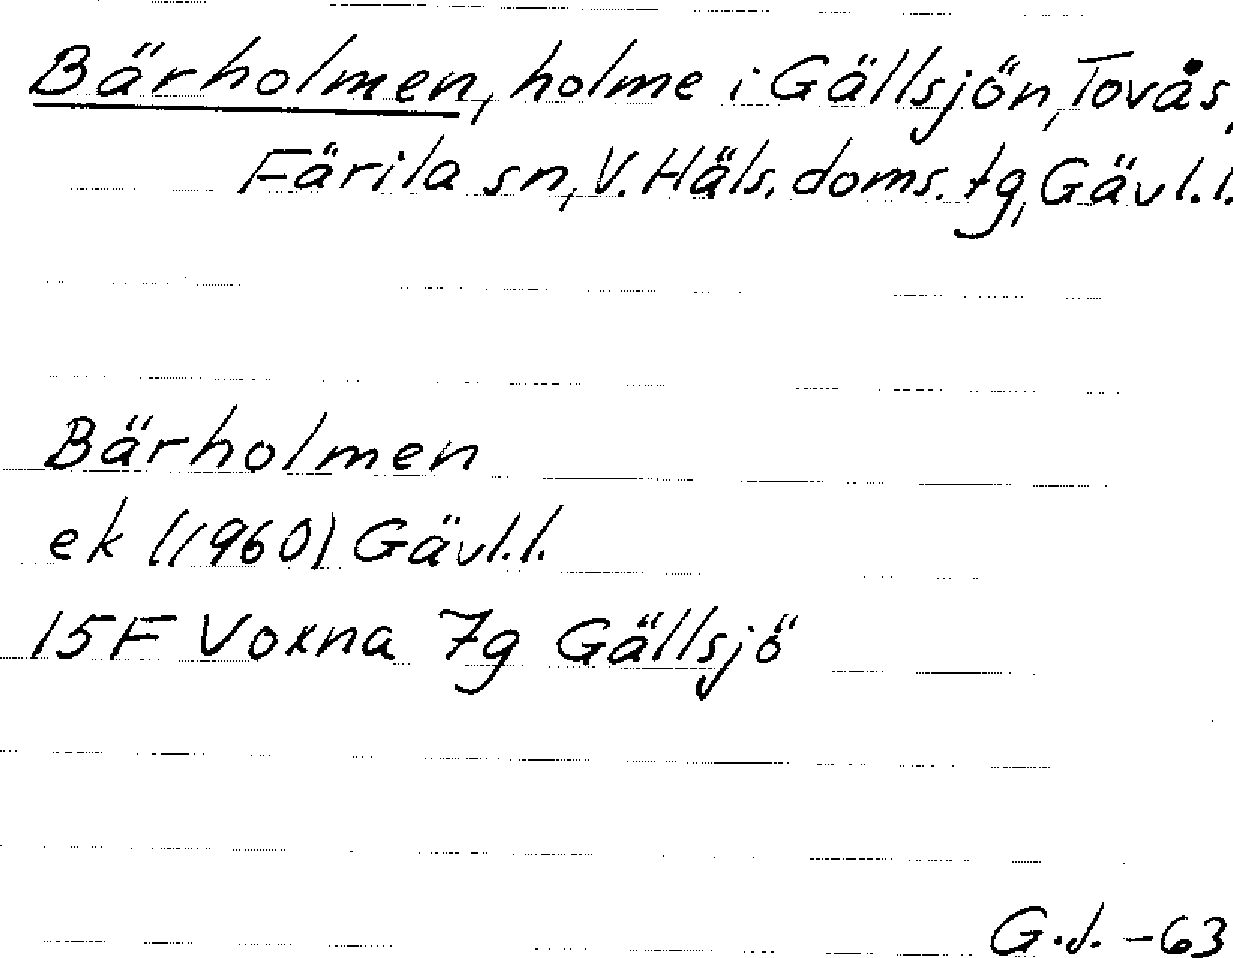 Bärholmen, holme i Gällsjön, Tovås,
Färila sn, V. Häls. doms. tg, Gävl.l.
Bärholmen
ek (1960) Gävl.l.
15F Voxna 7g Gällsjö
G.d. -63